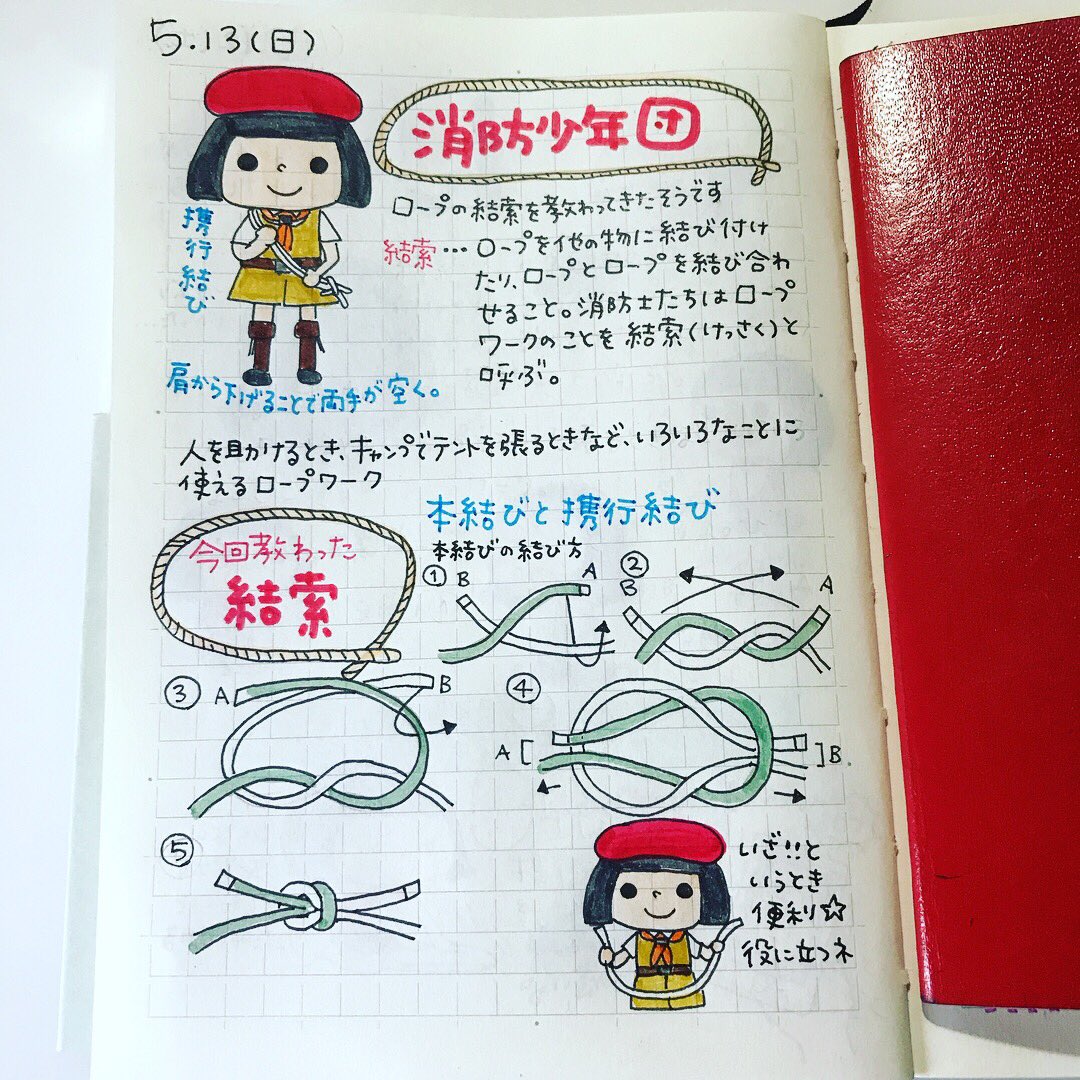 5.13(日)
消防少年団
ロープの結索を教わってきたそうです
結索…ロープを他の物に結び付け
たり、ロープとロープを結び合わ
せること。消防士たちはロープ
ワークのことを結索(けっさく)と
呼ぶ。
携行結び
肩から下げることで両手が空く。
人を助けるとき、キャンプでテントを張るときなど、いろいろなことに
使えるロープワーク
今回教わった
結索
本結びと携行結び
本結びの結び方
① B A
② B A
③ A B
④ A B
⑤
いざ!!と
いうとき
便利☆
役に立つネ